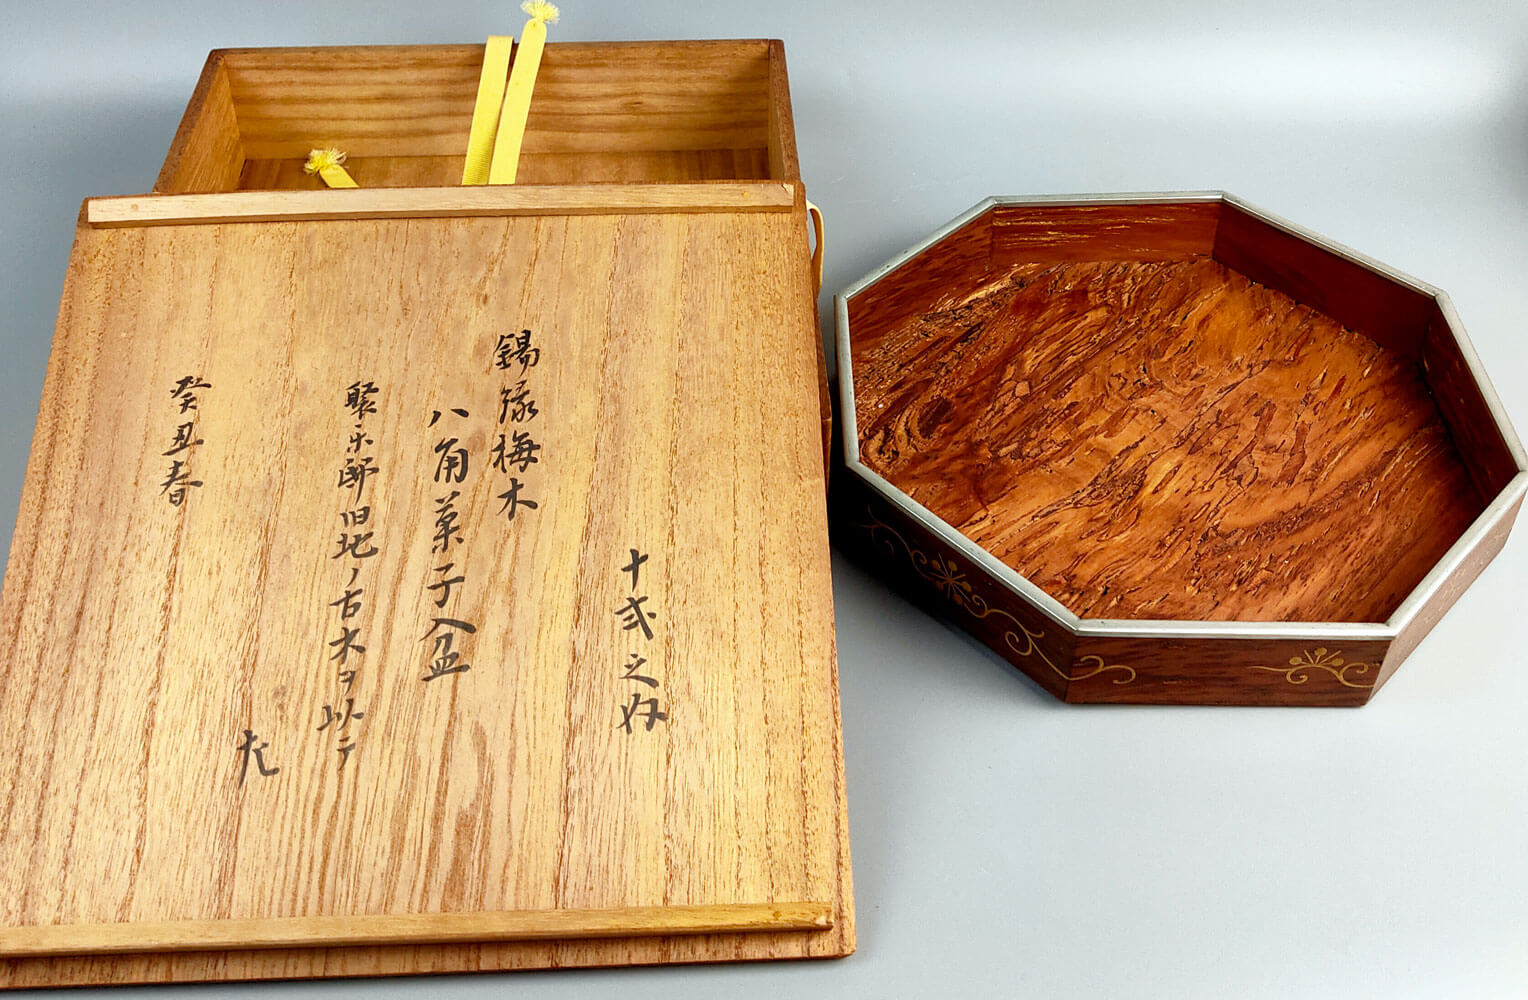 十弐之内
錫縁梅木
八角菓子盆
聚楽廓旧地ノ古木ヲ以テ
左
癸丑春